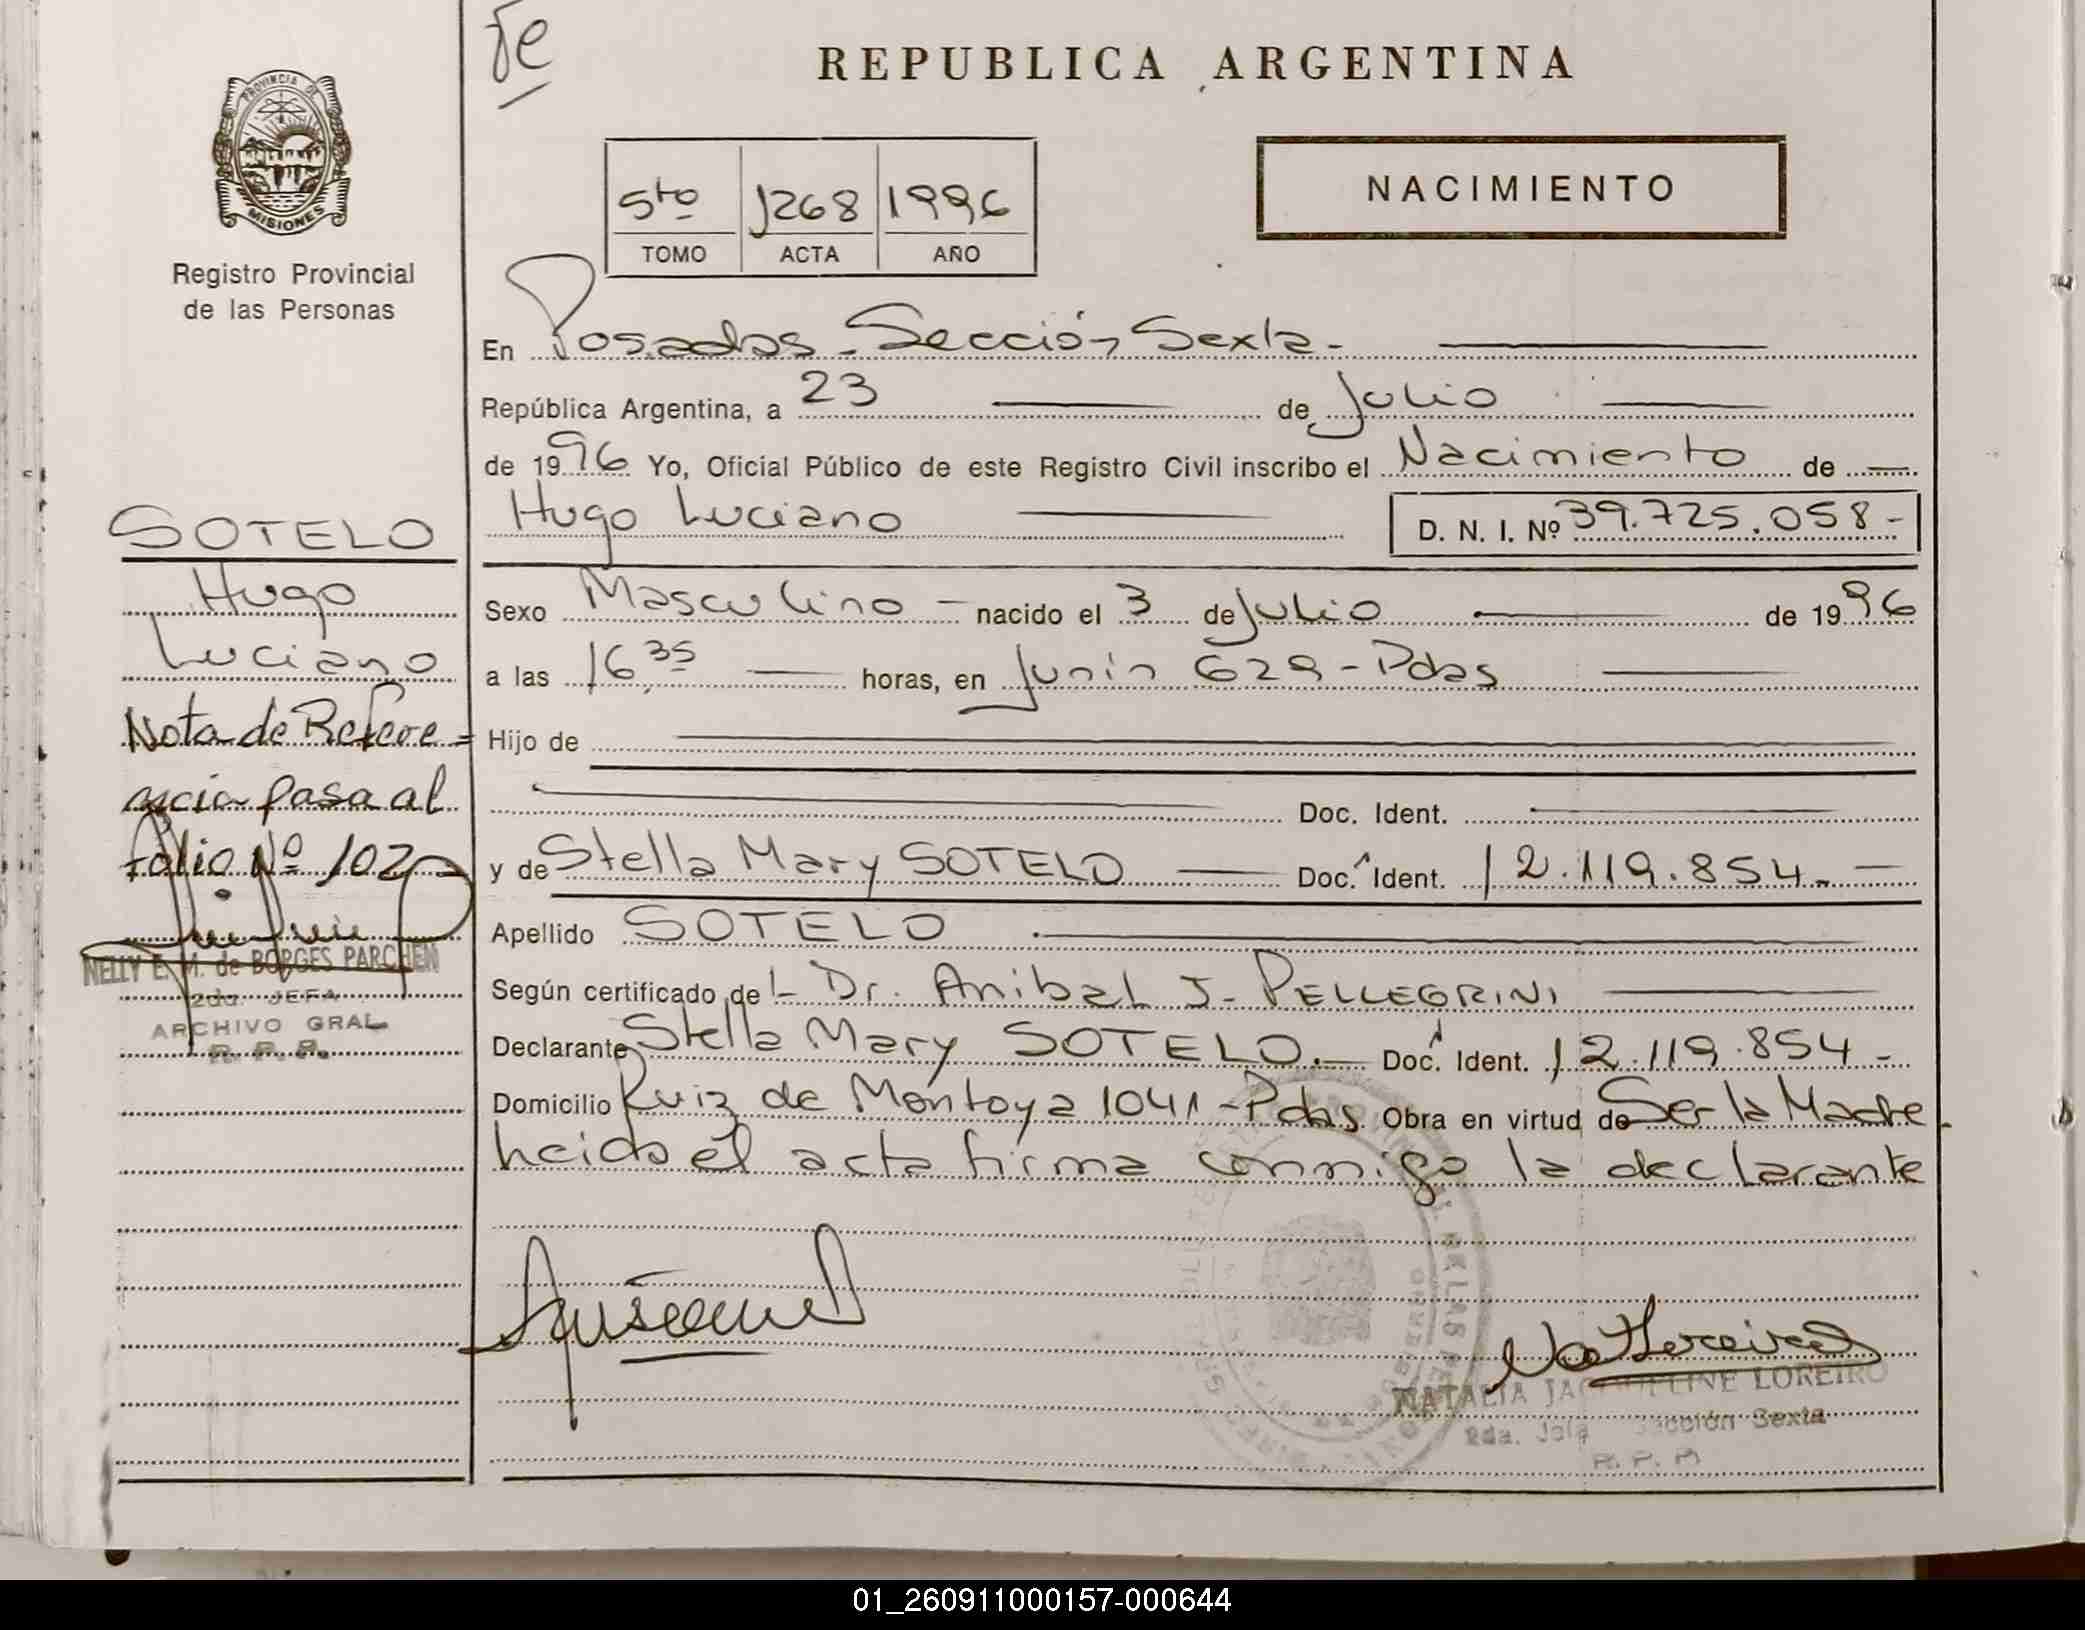 Fe
REPUBLICA ARGENTINA
PROVINCIA DE
MISIONES
Registro Provincial
de las Personas
5to 1268 1996
TOMO ACTA AÑO
NACIMIENTO
En Posadas - Sección Sexta -
República Argentina, a 23 de Julio
de 1996 Yo, Oficial Público de este Registro Civil inscribo el Nacimiento de
Hugo Luciano D. N. I. Nº 39.725.058-
SOTELO
Hugo
Luciano
Nota de Refere=
ncia pasa al
folio Nº 102
NELLY E. M. de BORGES PARCHEN
2da. JEFA
ARCHIVO GRAL
R. P. P.
Sexo Masculino - nacido el 3 de Julio de 1996
a las 16,35 horas, en Junín 629 - Pdas
Hijo de
Doc. Ident.
y de Stella Mary SOTELO Doc. Ident. 12.119.854.-
Apellido SOTELO
Según certificado del Dr. Anibal J. PELLEGRINI
Declarante Stella Mary SOTELO.- Doc. Ident. 12.119.854.-
Domicilio Ruiz de Montoya 1041 - Pdas. Obra en virtud de Ser la Madre
heida el acta firma conmigo la declarante
NATALIA JACQUELINE LOREIRO
2da. Jefa Sección Sexta
R. P. P.
01_260911000157-000644